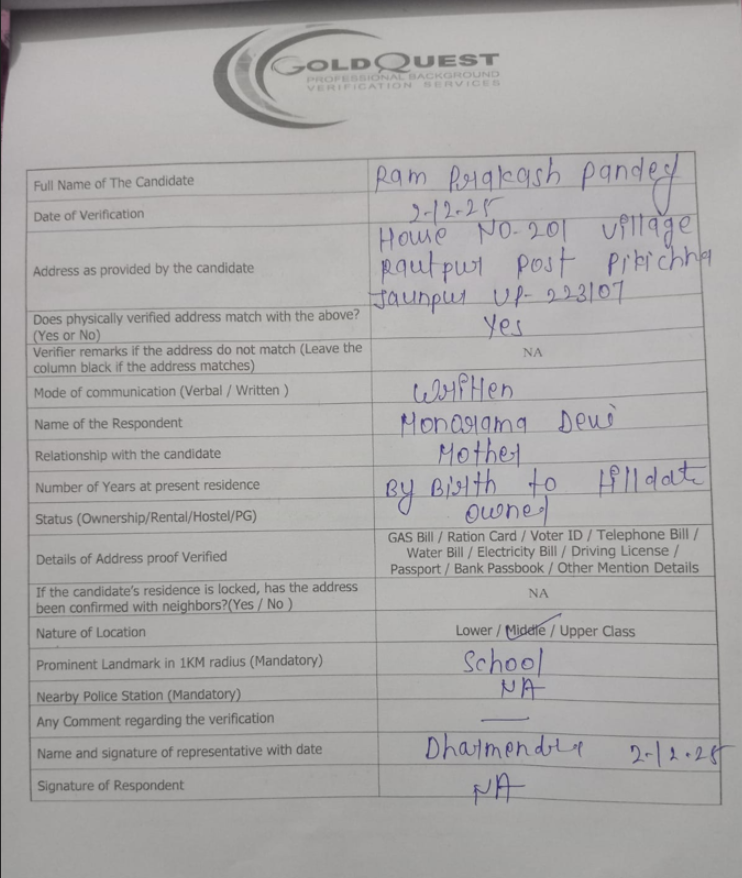 GOLDQUEST
PROFESSIONAL BACKGROUND
VERIFICATION SERVICES
Full Name of The Candidate Ram Prakash Pandey
Date of Verification 2-12-25
Address as provided by the candidate House NO-201 village
Rautpur Post Pilkichha
Jaunpur UP-223107
Does physically verified address match with the above?
(Yes or No) Yes
Verifier remarks if the address do not match (Leave the
column black if the address matches) NA
Mode of communication (Verbal / Written ) Written
Name of the Respondent Monorama Devi
Relationship with the candidate Mother
Number of Years at present residence By Birth to tilldate
Status (Ownership/Rental/Hostel/PG) Owner
Details of Address proof Verified GAS Bill / Ration Card / Voter ID / Telephone Bill /
Water Bill / Electricity Bill / Driving License /
Passport / Bank Passbook / Other Mention Details
If the candidate's residence is locked, has the address
been confirmed with neighbors?(Yes / No ) NA
Nature of Location Lower / Middle / Upper Class
Prominent Landmark in 1KM radius (Mandatory) School
Nearby Police Station (Mandatory) NA
Any Comment regarding the verification —
Name and signature of representative with date Dharmendra 2-12.25
Signature of Respondent NA